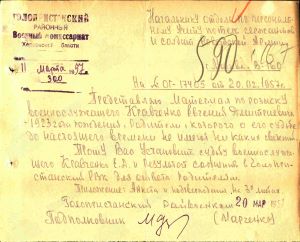 ГОЛОПРИСТАНСКИЙ
РАЙОННЫЙ
Военный комиссариат
Херсонской области
Начальнику отдела по персональному
учету потерь сержантского
и солдат Советской Армии
11 Марта 1957
300
590
На № ОГ-17465 от 20.02.1957г.
Представляю Материал по розыску
военнослужащего Кравченко Евгения Дмитриевича
1923 года рождения. Родители которого о его судьбе
до настоящего времени не имеют ни каких сведений.
Прошу Вас установить судьбу военнослужа-
щего Кравченко Е.Д. и результат сообщить в Голопри-
станский РВК для ответа родителям.
Приложение: Анкета и подтверждение на 3х листах
Голопристанский Райвоенком 20 мар 1957
Подполковник (Марченко)